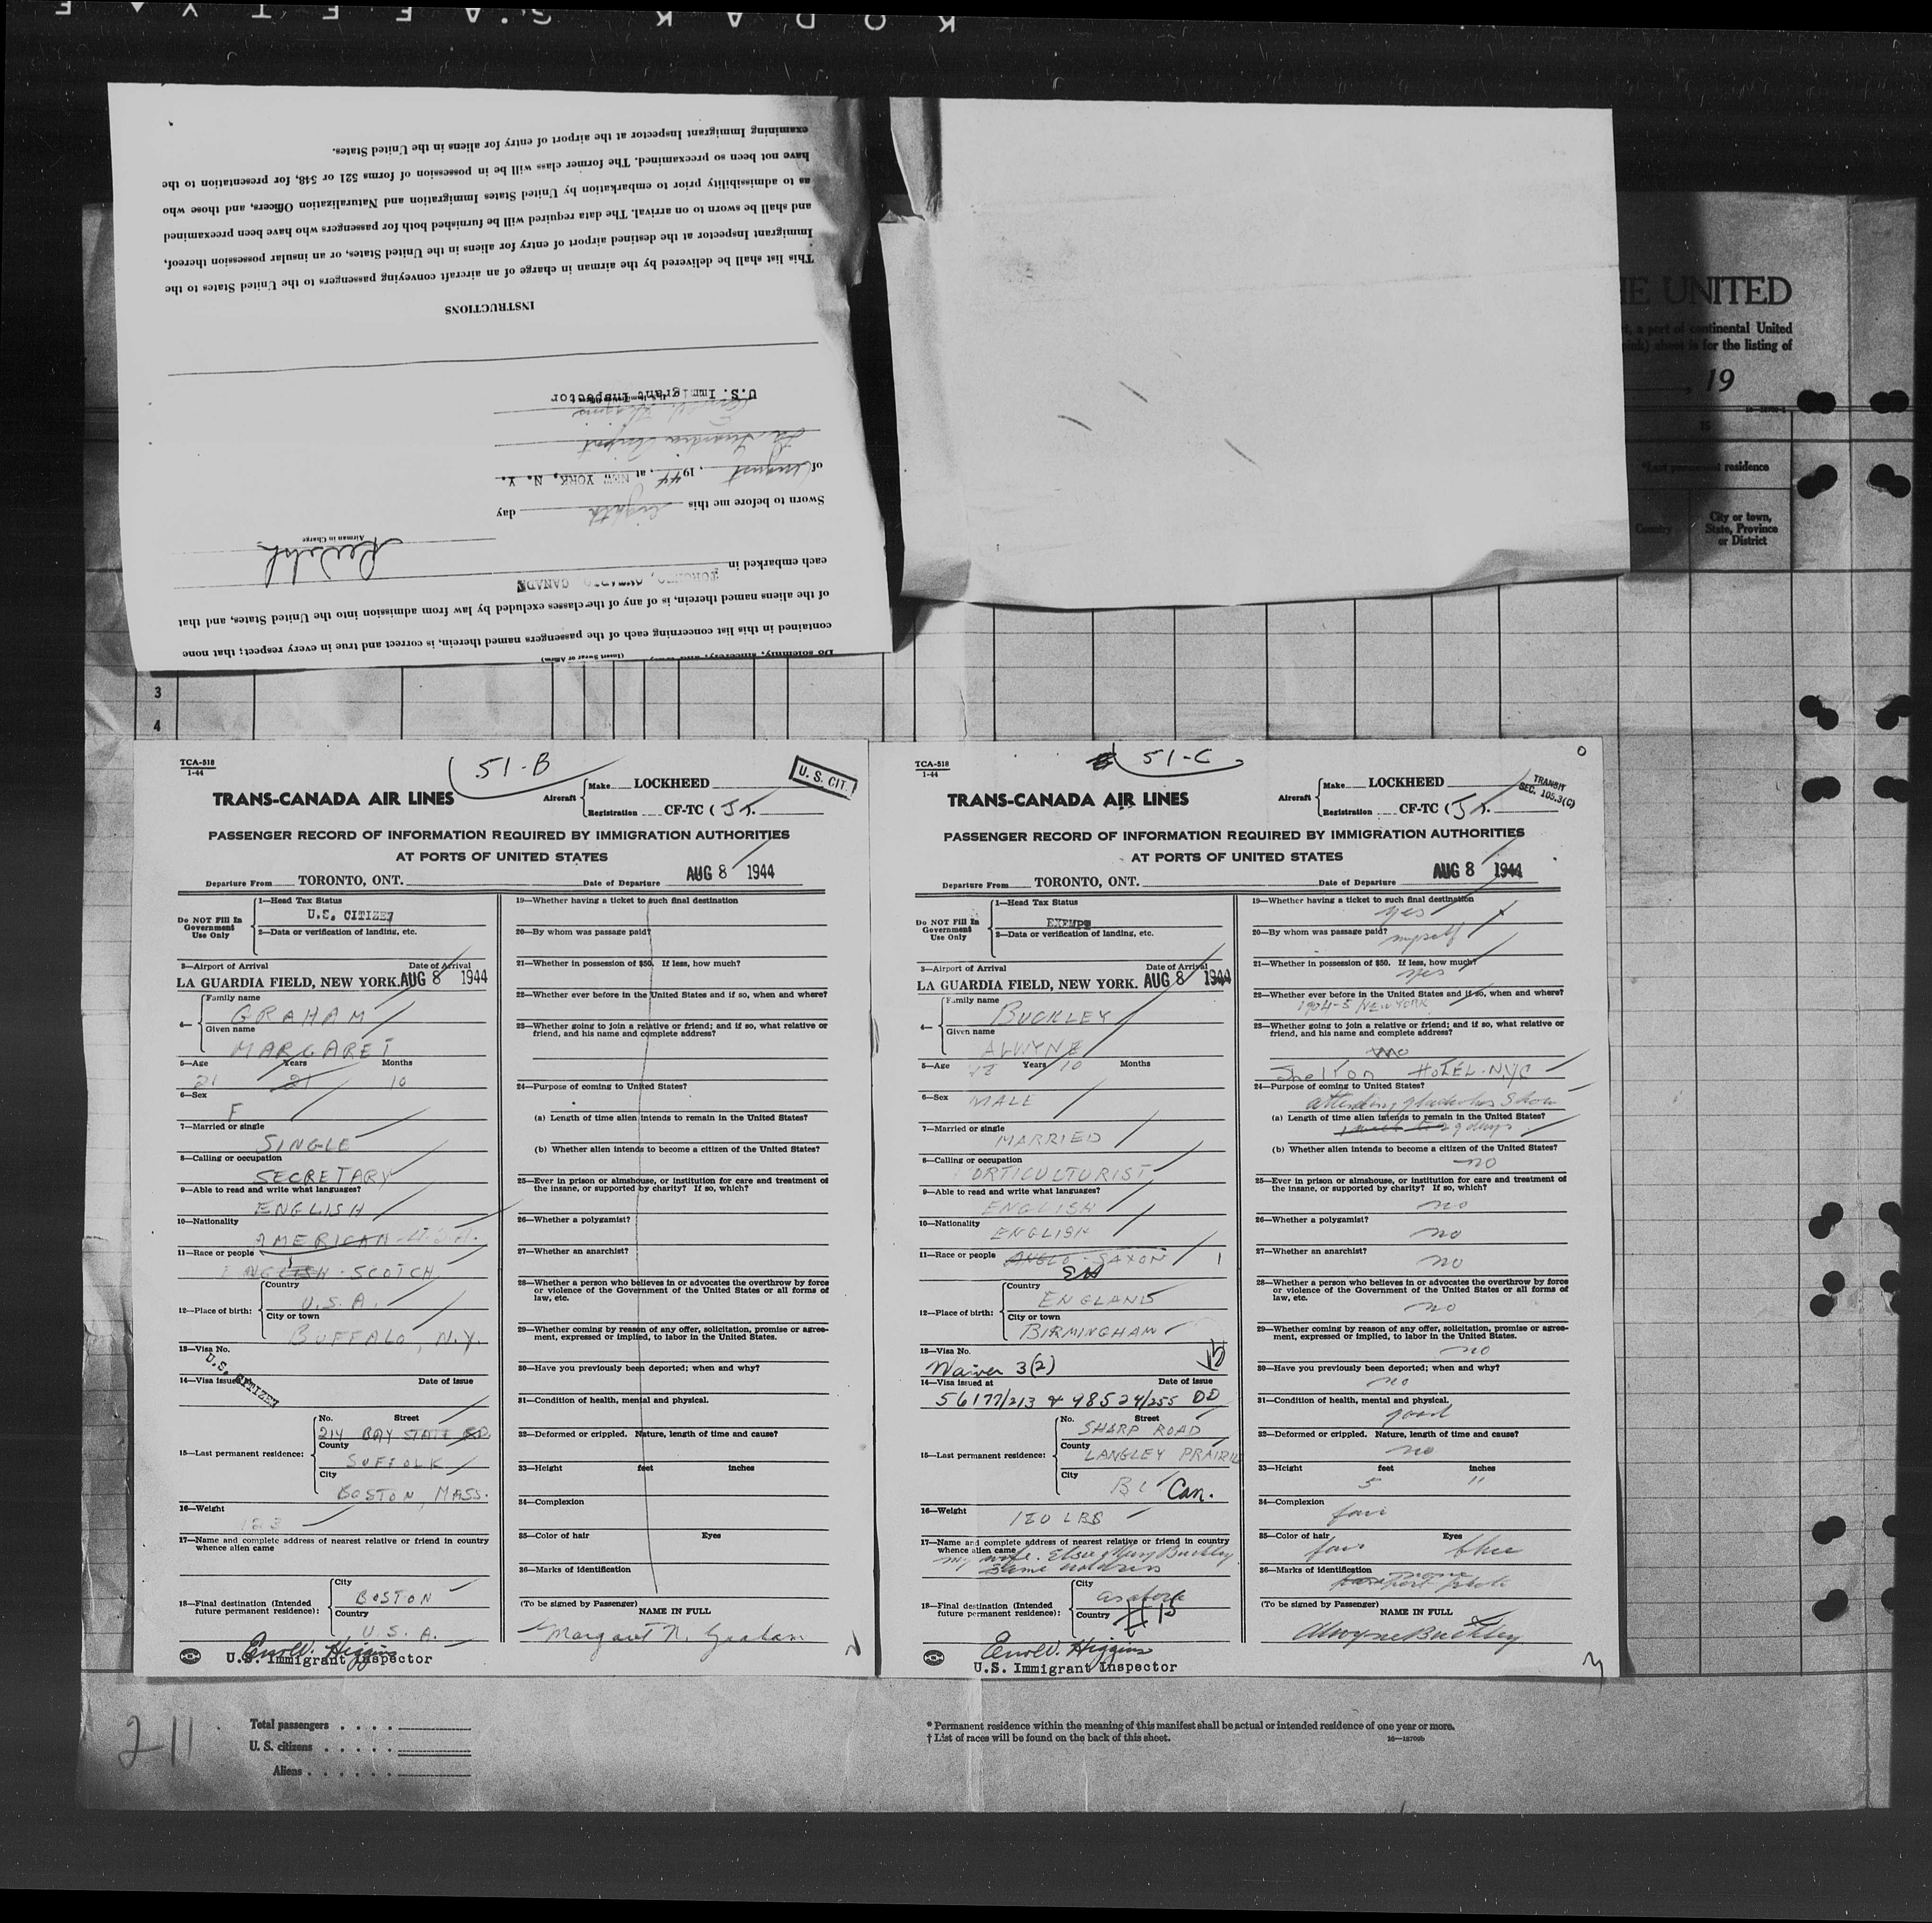 KODAK S.A.F.E.T.Y. F
examining Immigrant Inspector at the airport of entry for aliens in the United States.
have not been so preexamined. The former class will be in possession of forms 521 or 548, for presentation to the
as to admissibility prior to embarkation by United States Immigration and Naturalization Officers, and those who
and shall be sworn to on arrival. The data required will be furnished both for passengers who have been preexamined
Immigrant Inspector at the destined airport of entry for aliens in the United States, or an insular possession thereof,
This list shall be delivered by the airman in charge of an aircraft conveying passengers to the United States to the
INSTRUCTIONS
U.S. Immigrant Inspector
La Guardia Airport
of August, 1944, at NEW YORK, N. Y.
Sworn to before me this eighth day
Airman in Charge
each embarked in TORONTO, ONTARIO CANADA
of the aliens named therein, is of any of the classes excluded by law from admission into the United States, and that
contained in this list concerning each of the passengers named therein, is correct and true in every respect; that none
do solemnly, sincerely, and truly
HE UNITED
, a port of continental United
(pink) sheet is for the listing of
, 19
*Last permanent residence
Country
City or town,
State, Province
or District
3
4
TCA-518
1-44
51-B
U. S. CIT.
TRANS-CANADA AIR LINES
Aircraft
Make LOCKHEED
Registration CF-TC (JK.
PASSENGER RECORD OF INFORMATION REQUIRED BY IMMIGRATION AUTHORITIES
AT PORTS OF UNITED STATES
Departure From TORONTO, ONT. Date of Departure AUG 8 1944
Do NOT Fill In
Government
Use Only
1—Head Tax Status
U.S. CITIZEN
2—Data or verification of landing, etc.
3—Airport of Arrival Date of Arrival
LA GUARDIA FIELD, NEW YORK. AUG 8 1944
4—
Family name
GRAHAM
Given name
MARGARET
5—Age Years Months
21 21 10
6—Sex
F
7—Married or single
SINGLE
8—Calling or occupation
SECRETARY
9—Able to read and write what languages?
ENGLISH
10—Nationality
AMERICAN - U.S.A.
11—Race or people
ENGLISH - SCOTCH
12—Place of birth:
Country
U.S.A.
City or town
BUFFALO, N.Y.
13—Visa No.
U.S. CITIZEN
14—Visa issued at Date of issue
15—Last permanent residence:
No. Street
214 BAY STATE RD.
County
SUFFOLK
City
BOSTON, MASS.
16—Weight
123
17—Name and complete address of nearest relative or friend in country
whence alien came
18—Final destination (Intended
future permanent residence):
City
BOSTON
Country
U.S.A.
Errol W. Higgins
U.S. Immigrant Inspector
19—Whether having a ticket to such final destination
20—By whom was passage paid?
21—Whether in possession of $50. If less, how much?
22—Whether ever before in the United States and if so, when and where?
23—Whether going to join a relative or friend; and if so, what relative or
friend, and his name and complete address?
24—Purpose of coming to United States?
(a) Length of time alien intends to remain in the United States?
(b) Whether alien intends to become a citizen of the United States?
25—Ever in prison or almshouse, or institution for care and treatment of
the insane, or supported by charity? If so, which?
26—Whether a polygamist?
27—Whether an anarchist?
28—Whether a person who believes in or advocates the overthrow by force
or violence of the Government of the United States or all forms of
law, etc.
29—Whether coming by reason of any offer, solicitation, promise or agree-
ment, expressed or implied, to labor in the United States.
30—Have you previously been deported; when and why?
31—Condition of health, mental and physical.
32—Deformed or crippled. Nature, length of time and cause?
33—Height feet inches
34—Complexion
35—Color of hair Eyes
36—Marks of identification
(To be signed by Passenger)
NAME IN FULL
Margaret N. Graham
TCA-518
1-44
51-C
TRANSIT
SEC. 105.3(C)
TRANS-CANADA AIR LINES
Aircraft
Make LOCKHEED
Registration CF-TC (JK.
PASSENGER RECORD OF INFORMATION REQUIRED BY IMMIGRATION AUTHORITIES
AT PORTS OF UNITED STATES
Departure From TORONTO, ONT. Date of Departure AUG 8 1944
Do NOT Fill In
Government
Use Only
1—Head Tax Status
EXEMPT
2—Data or verification of landing, etc.
3—Airport of Arrival Date of Arrival
LA GUARDIA FIELD, NEW YORK. AUG 8 1944
4—
Family name
BUCKLEY
Given name
ALWYNE
5—Age Years Months
10
6—Sex MALE
7—Married or single
MARRIED
8—Calling or occupation
HORTICULTURIST
9—Able to read and write what languages?
ENGLISH
10—Nationality
ENGLISH
11—Race or people ANGLO-SAXON
12—Place of birth:
Country
ENGLAND
City or town
BIRMINGHAM
13—Visa No.
Waiver 3(2)
14—Visa issued at Date of issue
56177/213 & 98524/255 DD
15—Last permanent residence:
No. Street
SHARP ROAD
County
LANGLEY PRAIRIE
City
BC Can.
16—Weight
180 LBS
17—Name and complete address of nearest relative or friend in country
whence alien came
my wife. Elsie Mary Buckley
same address
18—Final destination (Intended
future permanent residence):
City
as above
Country
Errol W. Higgins
U.S. Immigrant Inspector
19—Whether having a ticket to such final destination
yes
20—By whom was passage paid?
myself
21—Whether in possession of $50. If less, how much?
yes
22—Whether ever before in the United States and if so, when and where?
1924-5 NEW YORK
23—Whether going to join a relative or friend; and if so, what relative or
friend, and his name and complete address?
no
Shelton HOTEL-NYC
24—Purpose of coming to United States?
attending gladiolus show
(a) Length of time alien intends to remain in the United States?
29 days
(b) Whether alien intends to become a citizen of the United States?
no
25—Ever in prison or almshouse, or institution for care and treatment of
the insane, or supported by charity? If so, which?
no
26—Whether a polygamist?
no
27—Whether an anarchist?
no
28—Whether a person who believes in or advocates the overthrow by force
or violence of the Government of the United States or all forms of
law, etc.
no
29—Whether coming by reason of any offer, solicitation, promise or agree-
ment, expressed or implied, to labor in the United States.
no
30—Have you previously been deported; when and why?
no
31—Condition of health, mental and physical.
good
32—Deformed or crippled. Nature, length of time and cause?
no
33—Height feet inches
5 11
34—Complexion
fair
35—Color of hair Eyes
fair blue
36—Marks of identification
none
passport photo
(To be signed by Passenger)
NAME IN FULL
Alwyne Buckley
211
Total passengers
U. S. citizens
Aliens
* Permanent residence within the meaning of this manifest shall be actual or intended residence of one year or more.
† List of races will be found on the back of this sheet.